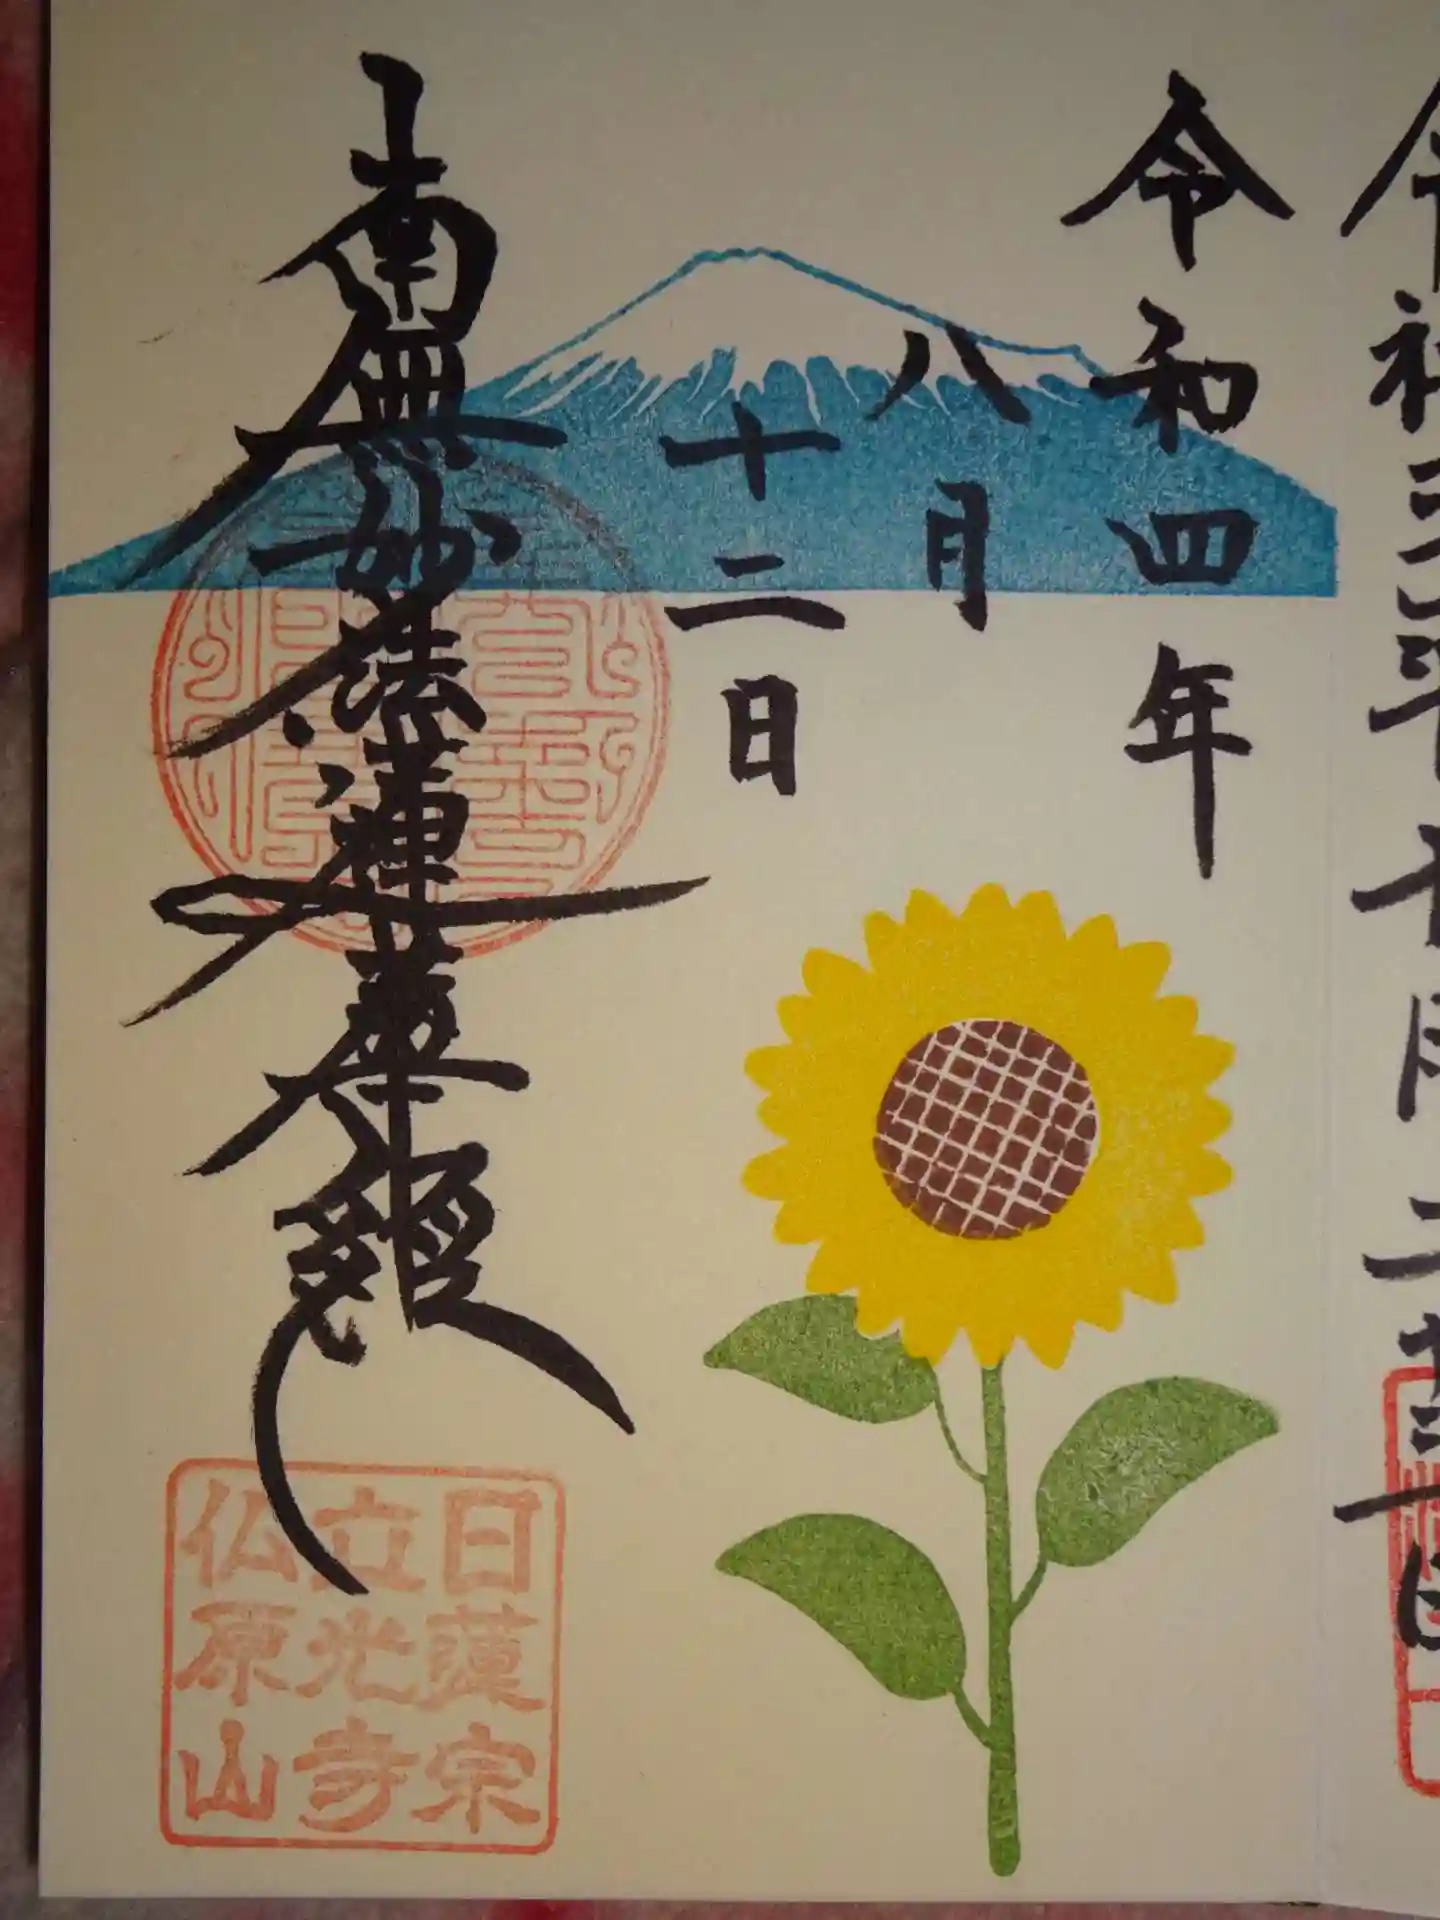 令和三年十月
令和四年
八月
十二日
南無妙法蓮華經
日蓮宗
立光寺
仏原山